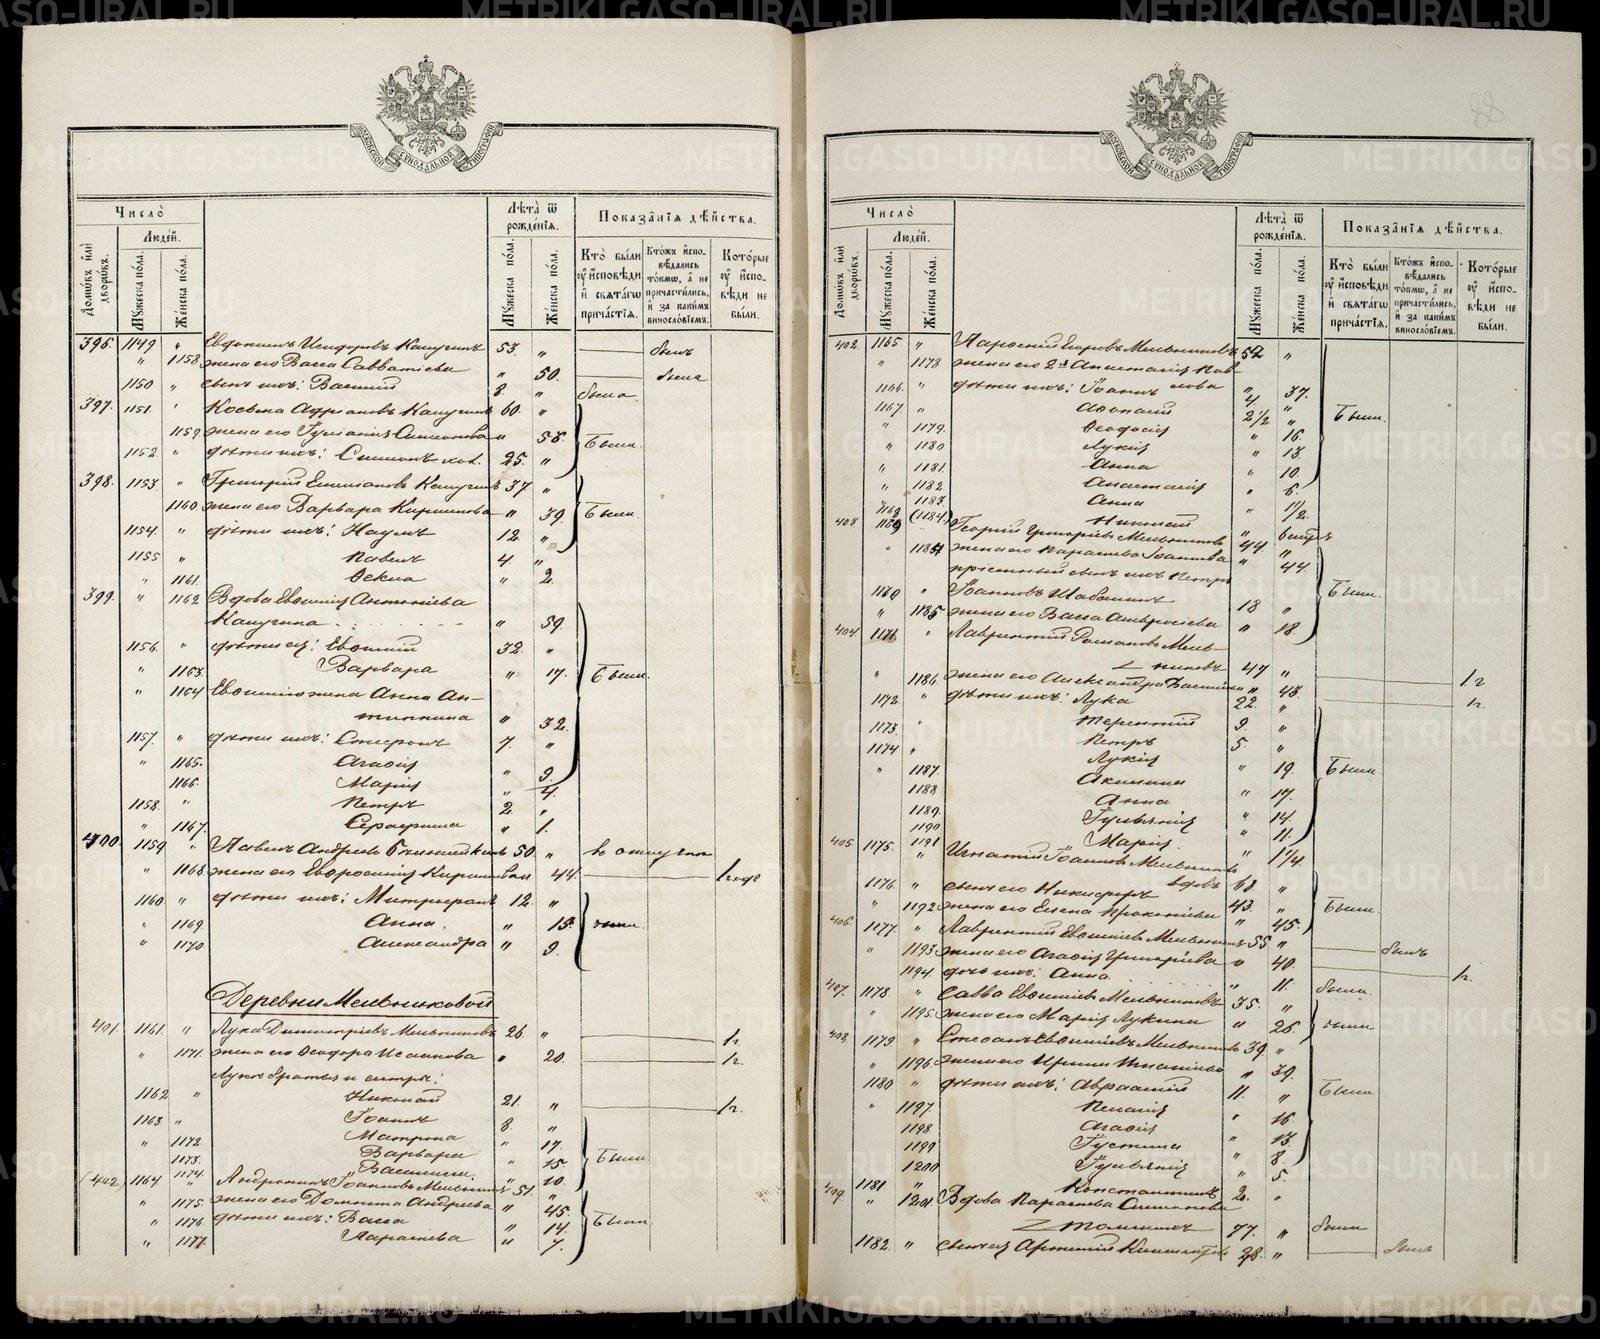 88
МОСКОВСКОЙ СѴНОДАЛЬНОЙ ТИПОГРАФІИ
Число̀
Лѣта̀ ѿ рожде́нїѧ.
Показа̂нїѧ дѣ́йства.
Домѡ́въ и҆лѝ дворѡ́въ.
Люде́й.
Мꙋ́жеска по́ла.
Же́нска по́ла.
Мꙋ́жеска по́ла.
Же́нска по́ла.
Кто̀ бы́ли оу҆ и҆́сповѣди и҆ свѧта́гѡ прича́стїѧ.
Кто́жъ и҆спо-вѣ́дались то́кмѡ, а҆ не причасти́лись, и҆ за каки́мъ виносло́вїемъ.
Кото́рые оу҆ и҆́спо-вѣди не бы́ли.
396. 1149 " Евдокимъ Исидоровъ Капугинъ 53. " былъ
" 1158 жена его Васса Савватіева " 50. была
1150 " сынъ ихъ: Василій 8. " была.
397. 1151. " Косьма Адріановъ Капугинъ 60. "
1159 жена его Іуліанія Симеонова " 58. Были.
1152 " дѣти ихъ: Симеонъ хол. 25. "
398. 1153 " Григорій Емиліановъ Капугинъ 37 "
1160 жена его Варвара Кириллова " 39. Были.
1154. " дѣти ихъ: Наумъ 12. "
1155 " Павелъ 4. "
" 1161. Ѳекла " 2.
399. " 1162. Вдова Евѳимія Антоніева
Капугина " 59.
1156. " дѣти ея: Евѳимій 32. "
" 1163. Варвара " 17. Были.
" 1164 Евѳимія жена Анна Ан-
типпина " 32.
1157. " дѣти ихъ: Стефанъ 7. "
" 1165. Агаѳія " 9.
1166. Марія " 4.
1158. " Петръ 2. "
" 1167. Серафима " 1.
400 1159 " Павелъ Андреевъ 50. " въ отлучкѣ
" 1168. жена его Евфросинія Кириллова 44. 1 годъ
1160 " дѣти ихъ: Митрофанъ 12. "
" 1169 Анна. " 15. были.
" 1170 Александра " 9.
Деревни Мельниковой
401. 1161. " Лука Димитріевъ Мельниковъ 26. " 1 г.
" 1171. жена его Ѳеодора Исаакова " 20. 1 г.
Луки братья и сестры:
1162 " Николай 21. " 1 г.
1163 " Іоаннъ 8. "
" 1172. Матрона " 17.
1173. Варвара " 15. Были.
1174. Василиса " 10.
(402) 1164 " Андроникъ Іоанновъ Мельниковъ 51. "
" 1175. жена его Домника Андреева " 45.
" 1176. дѣти ихъ: Васса " 14. Были.
" 1177. Параскева " 7.
Число̀
Лѣта̀ ѿ рожде́нїѧ.
Показа̂нїѧ дѣ́йства.
Домѡ́въ и҆лѝ дворѡ́въ.
Люде́й.
Мꙋ́жеска по́ла.
Же́нска по́ла.
Мꙋ́жеска по́ла.
Же́нска по́ла.
Кто̀ бы́ли оу҆ и҆́сповѣди и҆ свѧта́гѡ прича́стїѧ.
Кто́жъ и҆спо-вѣ́дались то́кмѡ, а҆ не причасти́лись, и҆ за каки́мъ виносло́вїемъ.
Кото́рые оу҆ и҆́спо-вѣди не бы́ли.
402. 1165 " Парѳеній Егоровъ Мельниковъ 52 "
" 1178 жена его 2я Анастасія Пав-лова " 37.
1166. " дѣти ихъ: Іоаннъ 4. "
1167 " Аѳанасій 2 1/2 " Были.
" 1179. Ѳеодосія " 16.
" 1180 Лукія " 13.
" 1181. Анна " 10.
" 1182. Анастасія " 6.
1183. Анна " 1/2.
1168 (1184) Николай "
403 1169 Георгій Григоріевъ Мельниковъ 44 "
" 1184 жена его Параскева Іоаннова " 44.
пріемный сынъ ихъ Петръ
1170 " Іоанновъ 18 " Были.
" 1185 жена его Васса Амвросіева " 18.
404 1171 " Лаврентій Романовъ Мель-
никовъ 47 " 1 г.
" 1186 жена его Александра " 43. 1 г.
1172 " дѣти ихъ: Лука 22. "
1173. " Терентій 9. "
1174 " Петръ 5. "
" 1187. Лукія " 19. Были.
1188 Акилина " 17.
1189. Анна " 14.
1190 Іуліанія " 11.
1191 Марія. " 1 1/4.
405 1175. " Игнатій Іоанновъ Мельниковъ
вдовъ 68 "
1176. " сынъ его Никифоръ 43. " Были.
" 1192 жена его Елена Прокопіева " 45.
406. 1177. " Лаврентій Евѳиміевъ Мельниковъ 55 " былъ
" 1193 жена его Агаѳія Григоріева " 40. 1 г.
1194. дочь ихъ: Анна " 11. была.
407. 1178. " Савва Евѳиміевъ Мельниковъ 35. "
" 1195. жена его Марія Лукина " 26. были
408. 1179. " Стефанъ Евѳиміевъ Мельниковъ 39. "
" 1196. жена его Ирина Игнатіева " 39.
1180 " дѣти ихъ: Авраамій 11. " Были
" 1197. Пелагія " 16.
1198 Агаѳія " 13.
1199 Іустина " 8.
1200 Іуліанія " 5.
1181 " Константинъ 2. "
409. " 1201 Вдова Параскева Симеонова
77. " была
1182. " сынъ ея Артемій 28. " былъ
METRIKI.GASO-URAL.RU